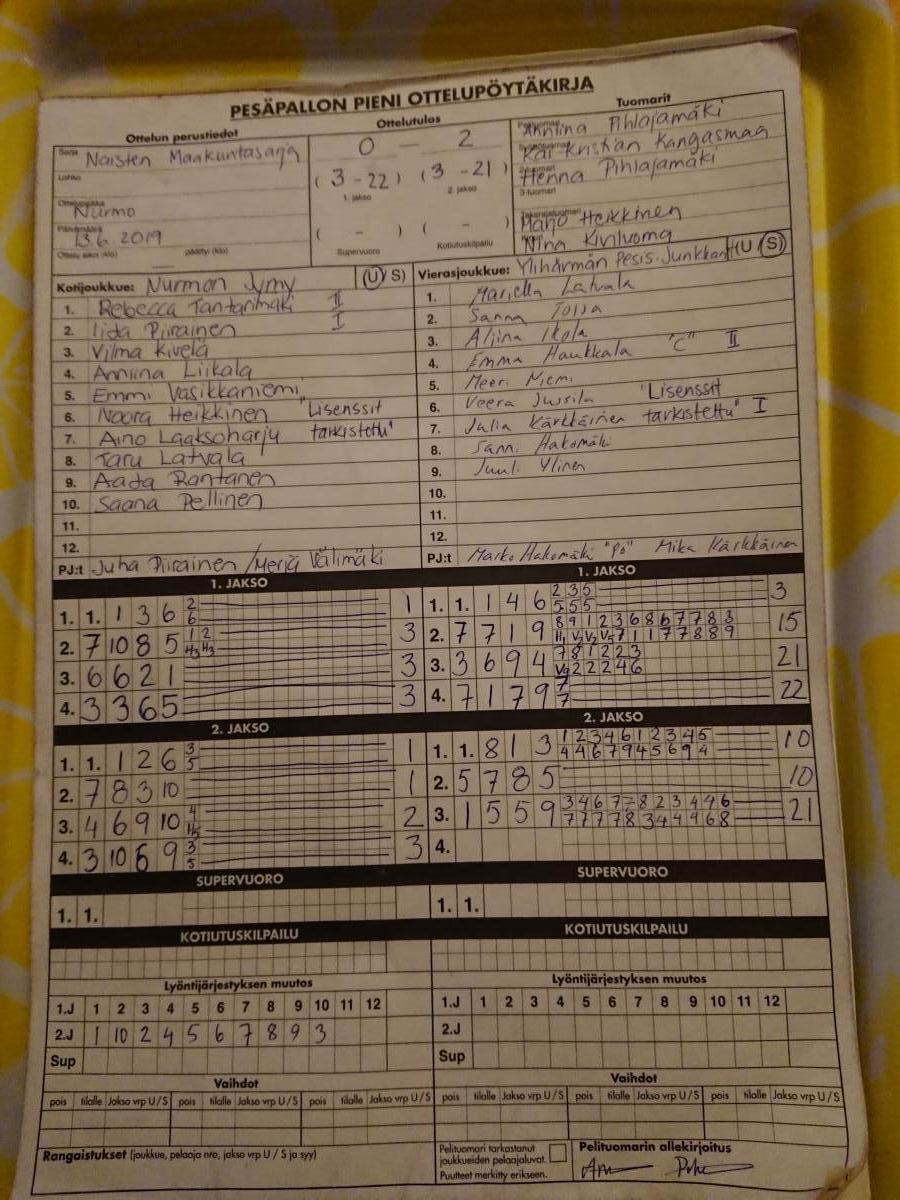 PESÄPALLON PIENI OTTELUPÖYTÄKIRJA
Ottelun perustiedot
Ottelutulos
Tuomarit
Sarja Naisten Maakuntasarja
0 - 2
Anniina Pihlajamäki
Lohko
(3 - 22) (3 - 21)
Kai-Kristian Kangasmaa
1. jakso 2. jakso
Henna Pihlajamäki
Ottelupaikka Nurmo
3-tuomari
Päivämäärä 13.6.2019
( - ) ( - )
Heikkinen
Ottelu alkoi (klo) päättyi (klo)
Supervuoro Kotiutuskilpailu
Nina Kiviluoma
Kotijoukkue: Nurmon Jymy (U/S)
Vierasjoukkue: Ylihärmän Pesis-Junkkarit (U/S)
1. Rebecca Tantarimäki II
1. Mariella Latvala
2. Iida Piirainen I
2. Sanna
3. Vilma Kivelä
3. Ikola
4. Anniina Liikala
4. Emma Haukkala "C" II
5. Emmi Vasikkaniemi
5. Meeri Niemi
6. Noora Heikkinen "Lisenssit
6. Veera Jussila "Lisenssit
7. Aino Laaksoharju tarkistettu"
7. Julia Kärkkäinen tarkistettu" I
8. Taru Latvala
8. Sanni Hakomäki
9. Aada Rantanen
9. Juuli Ylinen
10. Saana Pellinen
10.
11.
11.
12.
12.
PJ:t Juha Piirainen / Merja Välimäki
PJ:t Marko Hakomäki "Pö" Mika Kärkkäinen
1. JAKSO
1. JAKSO
1. 1. 1 3 6 2 6 1
1. 1. 1 4 6 2 3 5 5 5 5 3
2. 7 10 8 5 1 2 H3 H3 3
2. 7 7 1 9 8 9 1 2 3 6 8 6 7 7 8 3 H1 V2 V2 V5 7 1 1 7 7 8 8 9 15
3. 6 6 2 1 3
3. 3 6 9 4 7 8 1 2 2 3 V9 2 2 2 4 6 21
4. 3 3 6 5 3
4. 7 1 7 9 7 7 22
2. JAKSO
2. JAKSO
1. 1. 1 2 6 3 5 1
1. 1. 8 1 3 1 2 3 4 6 1 2 3 4 5 4 4 6 7 9 4 5 6 9 4 10
2. 7 8 3 10 1
2. 5 7 8 5 10
3. 4 6 9 10 4 H5 2
3. 1 5 5 9 3 4 6 7 7 8 2 3 4 4 6 7 7 7 7 8 3 4 4 9 6 8 21
4. 3 10 6 9 3 5 3
4.
SUPERVUORO
SUPERVUORO
1. 1.
1. 1.
KOTIUTUSKILPAILU
KOTIUTUSKILPAILU
Lyöntijärjestyksen muutos
Lyöntijärjestyksen muutos
1.J 1 2 3 4 5 6 7 8 9 10 11 12
1.J 1 2 3 4 5 6 7 8 9 10 11 12
2.J 1 10 2 4 5 6 7 8 9 3
2.J
Sup
Sup
Vaihdot
Vaihdot
pois tilalle Jakso vrp U/S pois tilalle Jakso vrp U/S pois tilalle Jakso vrp U/S
pois tilalle Jakso vrp U/S pois tilalle Jakso vrp U/S pois tilalle Jakso vrp U/S
Rangaistukset (joukkue, pelaaja nro, jakso vrp U / S ja syy)
Pelituomari tarkastanut
joukkueiden pelaajaluvat.
Puutteet merkitty erikseen.
Pelituomarin allekirjoitus